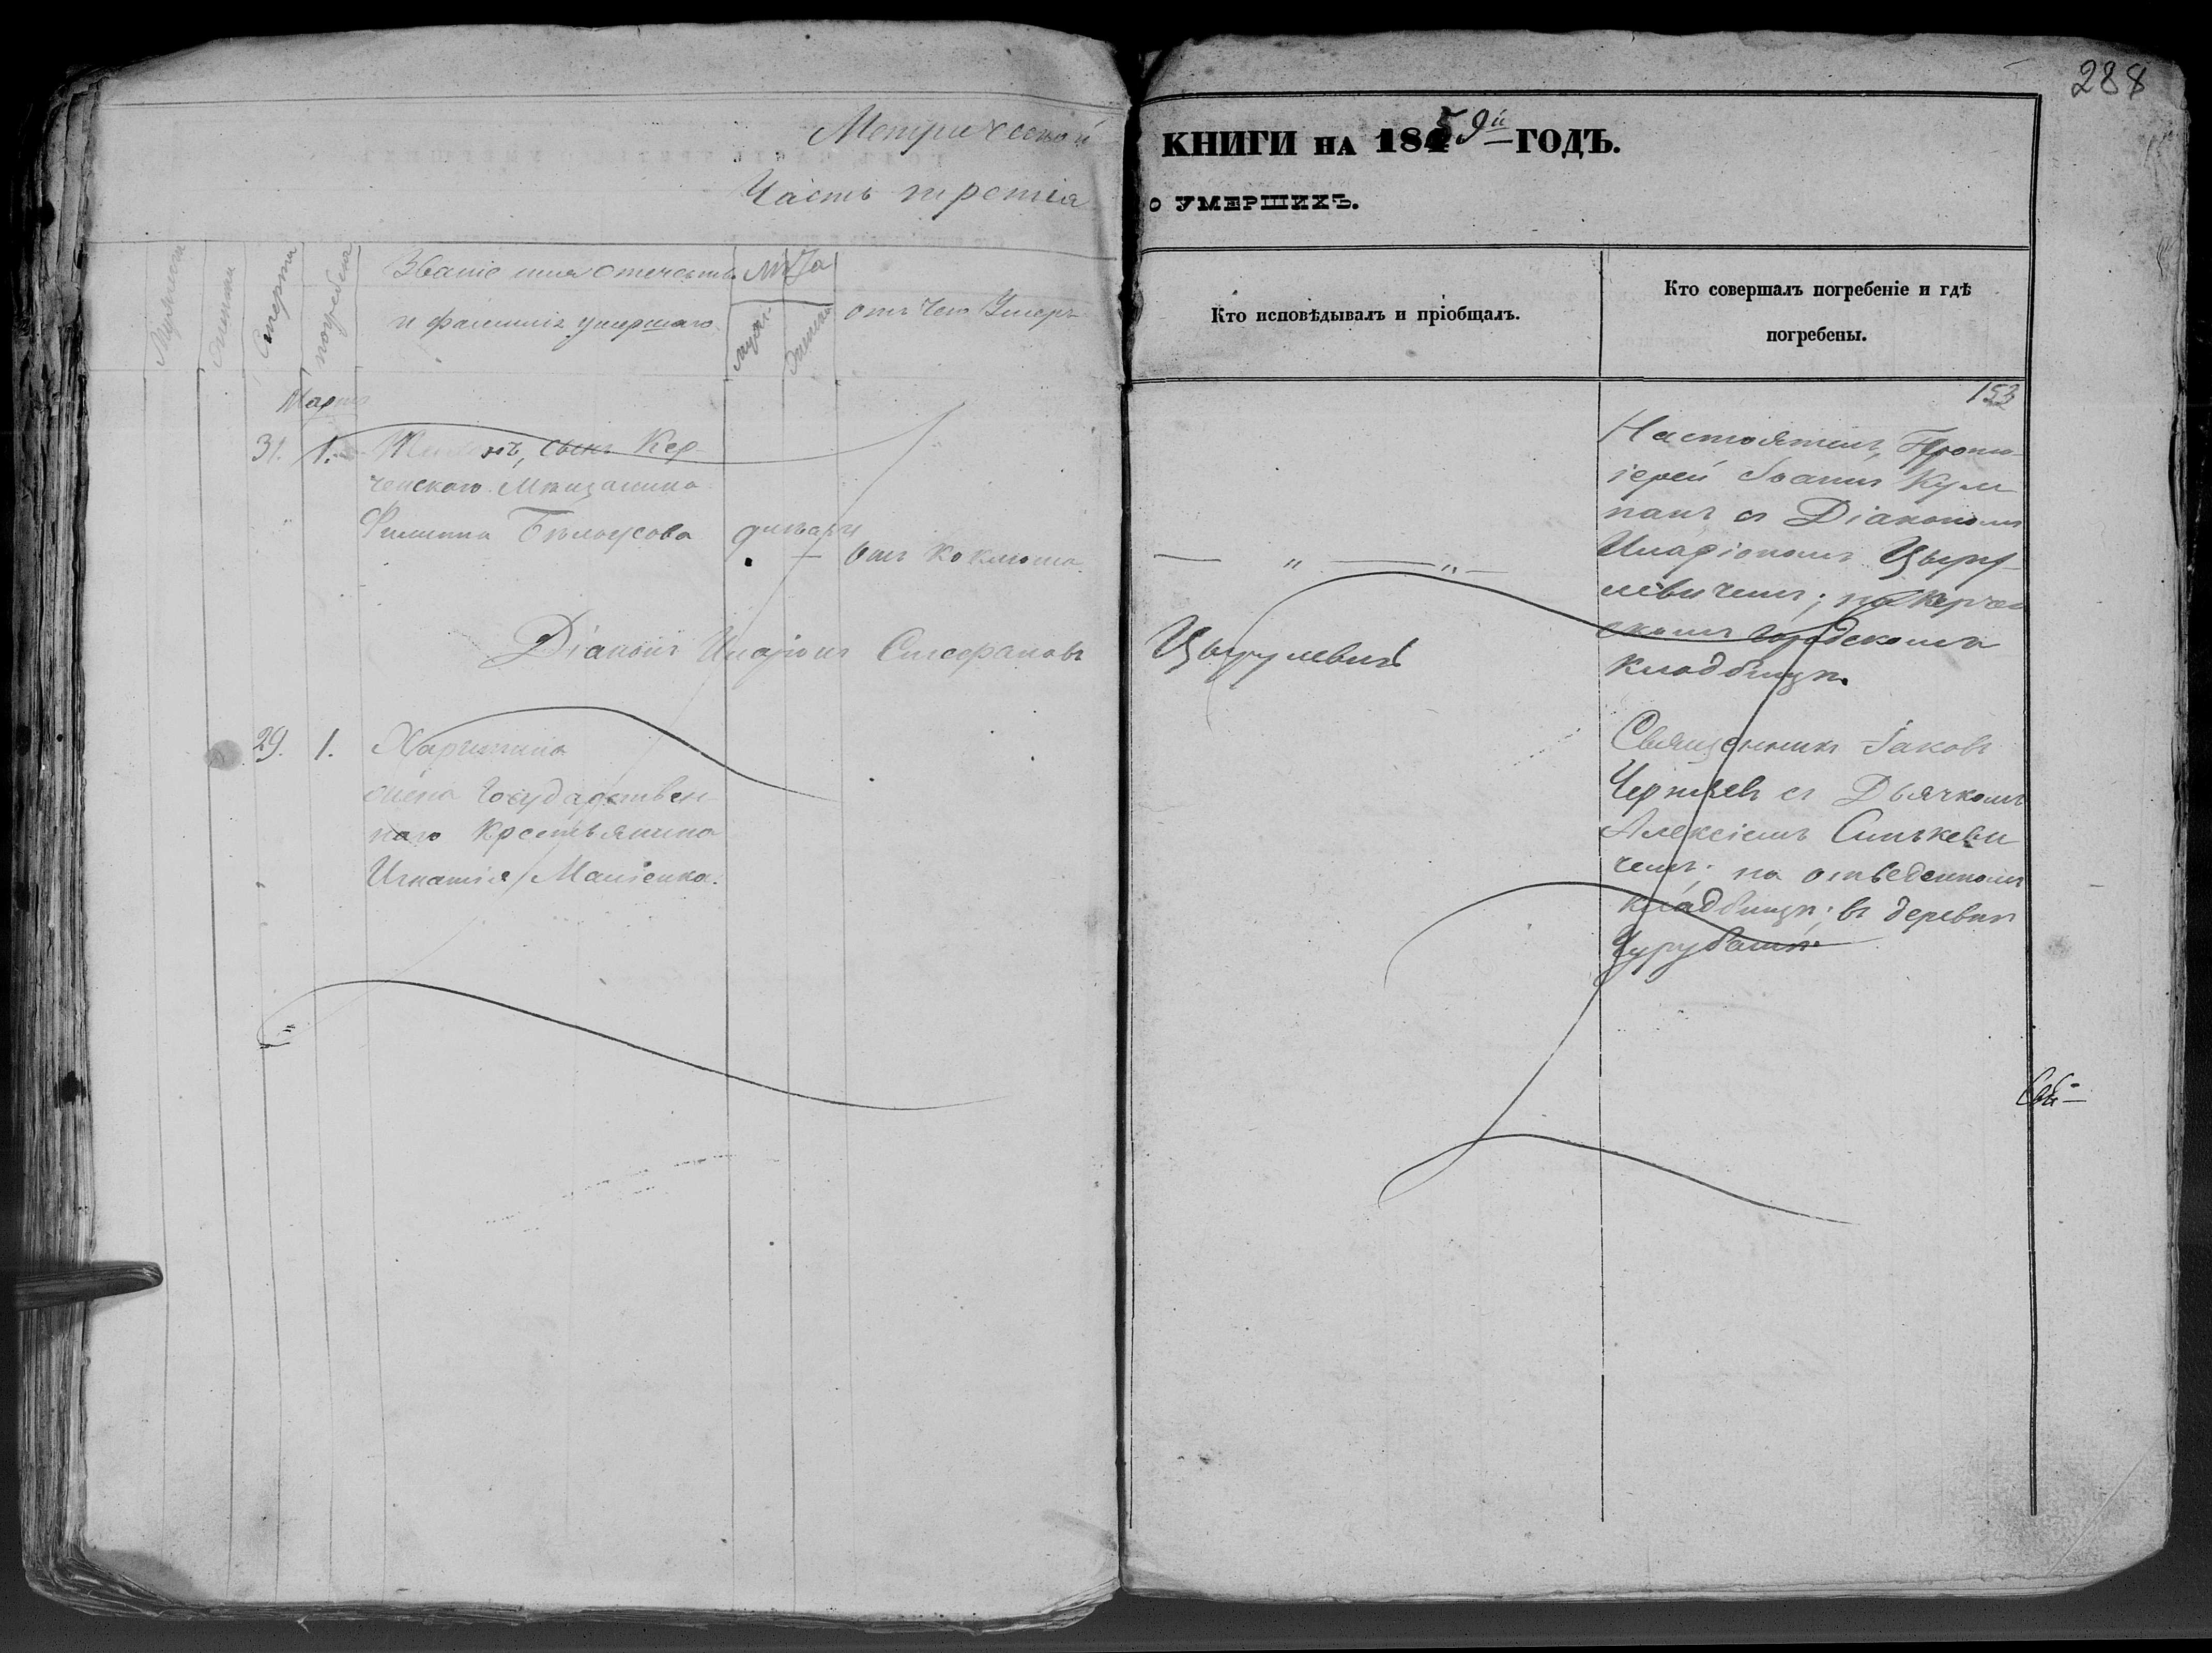 288
Метрической КНИГИ НА 1859й ГОДЪ.
Часть третія О УМЕРШИХЪ.
Мужеска
Женска
Смерти
погребенія
Званіе имя отечество
и фамилія умершаго
Лѣта
муж.
женска
отъ чего Умеръ
Кто исповѣдывалъ и пріобщалъ.
Кто совершалъ погребеніе и гдѣ
погребены.
153
Марта
31. 1. сынъ Кер-
ченскаго Мѣщанина
Филиппа Бѣлоусова
Отъ Коклюша.
Настоятель, Прото-
іерей Іоаннъ Кум-
панъ съ Діакономъ
Иларіономъ Цыру-
левичемъ; на Керчен-
скомъ городскомъ
кладбищѣ.
Діаконъ Иларіонъ Стефановъ Цырулевичъ
29. 1. Харитина
жена Государствен-
наго Крестьянина
Игнатія
Священникъ Іаковъ
съ Дьячкомъ
Алексіемъ Синькеви-
чемъ; на отведенномъ
кладбищѣ; въ деревнѣ
Чурубашѣ.